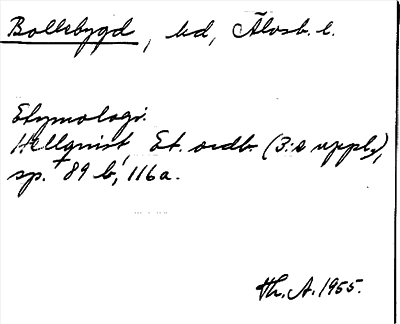 Bollebygd, hd, Älvsb. l.
Etymologi.
Hellquist, Et. ordb. (3:e uppl.),
sp. 89 b, 116a.
Th. A. 1955.